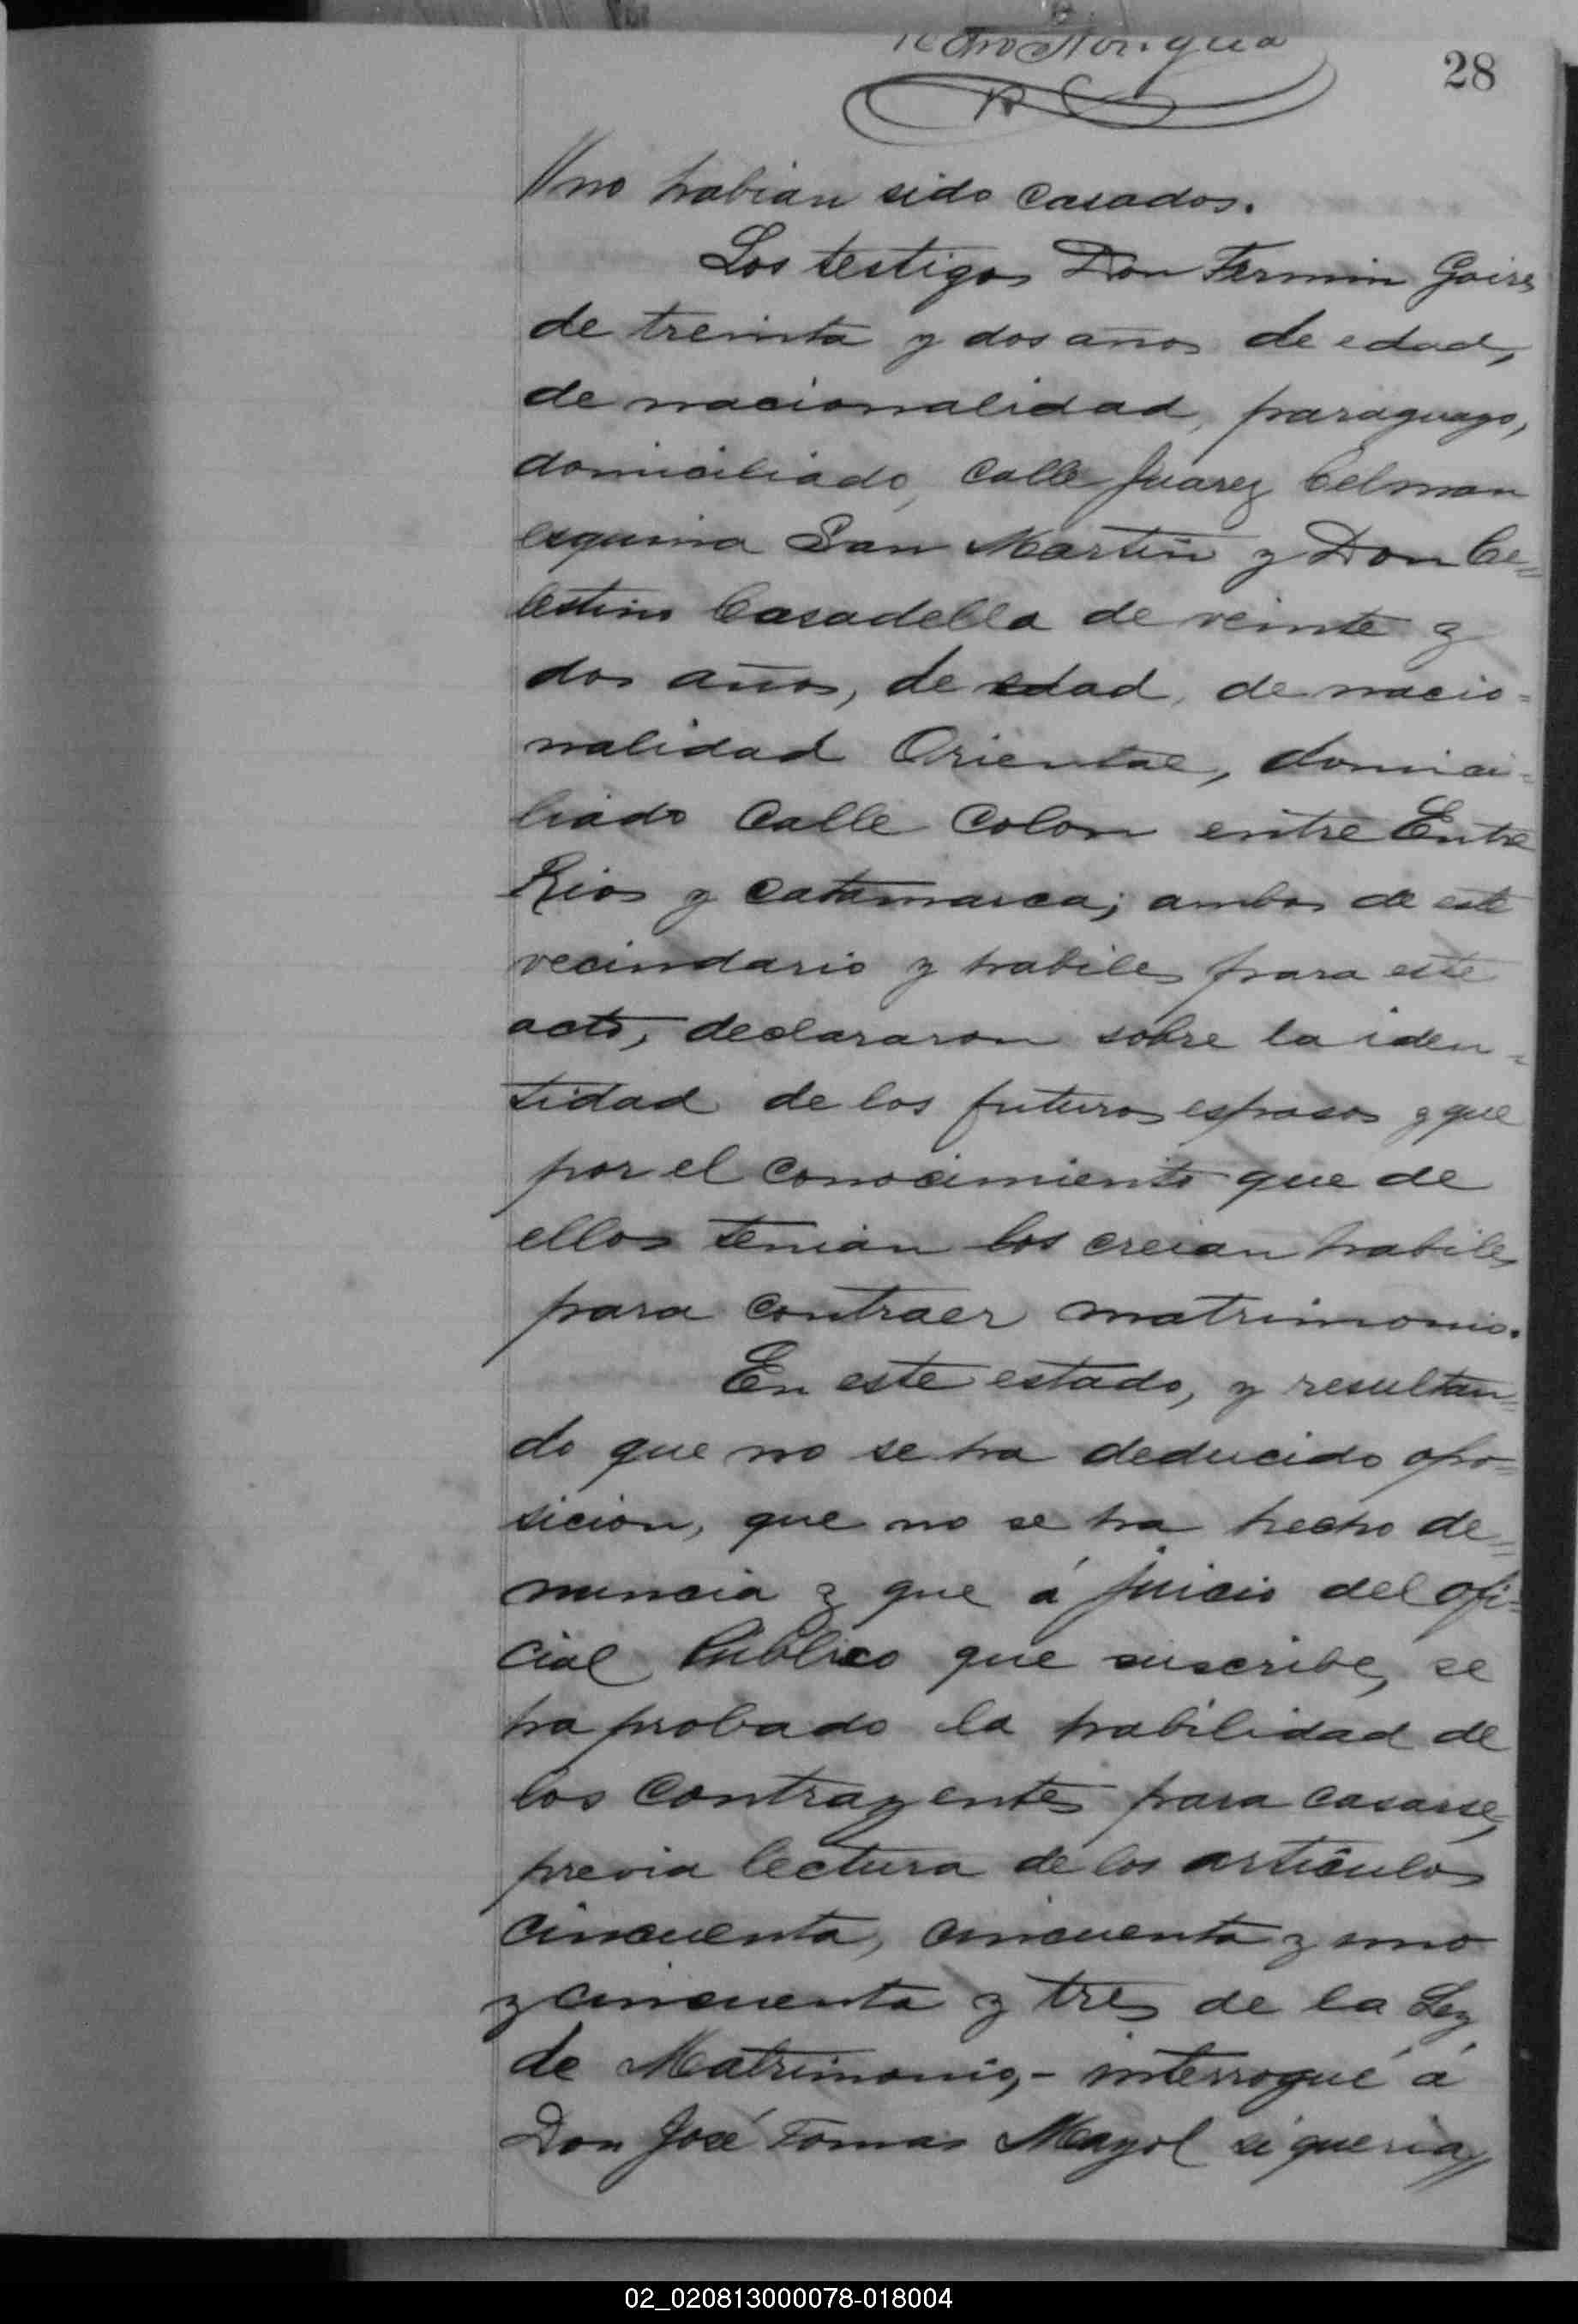 28
//no habian sido casados.
Los testigos Don Fermin
de treinta y dos años de edad,
de nacionalidad, paraguayo,
domiciliado, calle Juarez Celman
esquina San Martin y Don Ce=
lestino Casadella de veinte y
dos años, de edad, de nacio=
nalidad Oriental, domici=
liado calle Colon entre Entre
Rios y Catamarca; ambos de este
vecindario y habiles para este
acto, declararon sobre la iden=
tidad de los futuros esposos y que
por el conocimiento que de
ellos tenian los creian habiles
para contraer matrimonio.
En este estado, y resultan=
do que no se ha deducido opo=
sicion, que no se ha hecho de=
nuncia y que á juicio del ofi=
cial Público que suscribe, se
ha probado la habilidad de
los contrayentes para casarse,
previa lectura de los artículos
cincuenta, cincuenta y uno
y cincuenta y tres de la Ley
de Matrimonio,- interrogué á
Don José Tomas Mayol si queria//
02_020813000078-018004